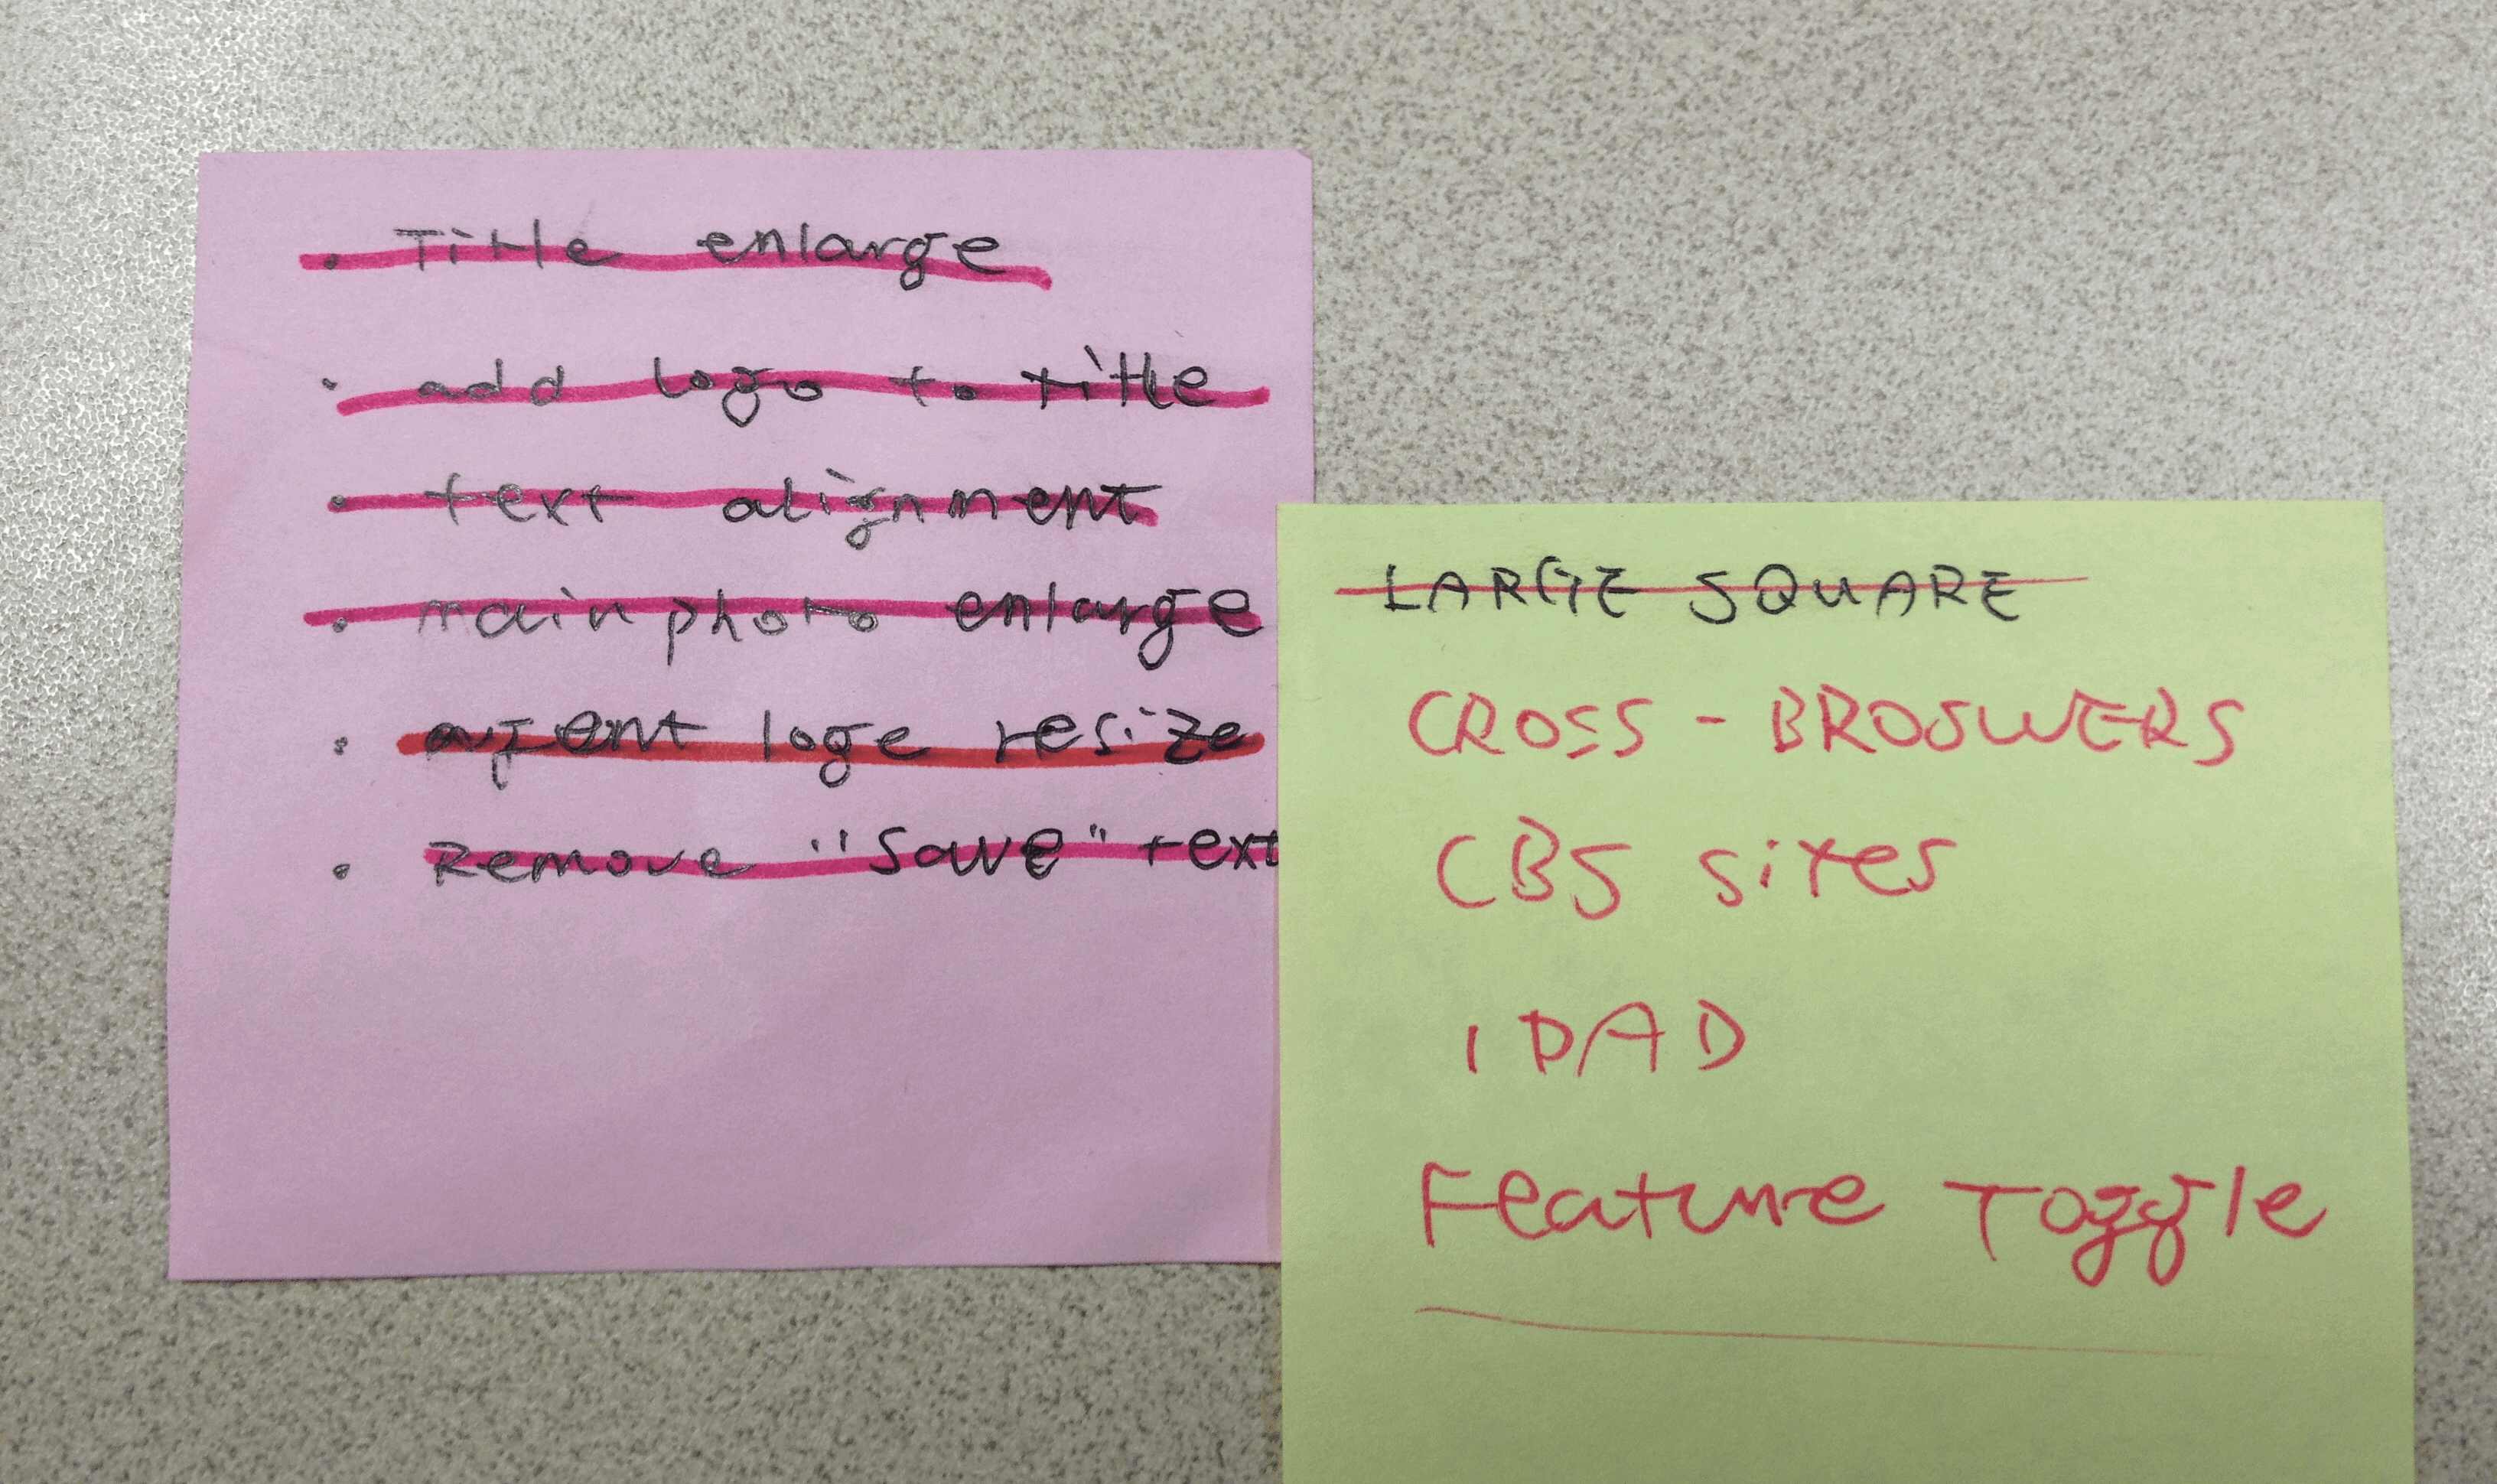 . Title enlarge
. add logo to title
. text alignment
. main photo enlarge
. agent loge resize
. Remove "Save" text
LARGE SQUARE
CROSS - BROSWERS
CBS sites
IPAD
Feature Toggle